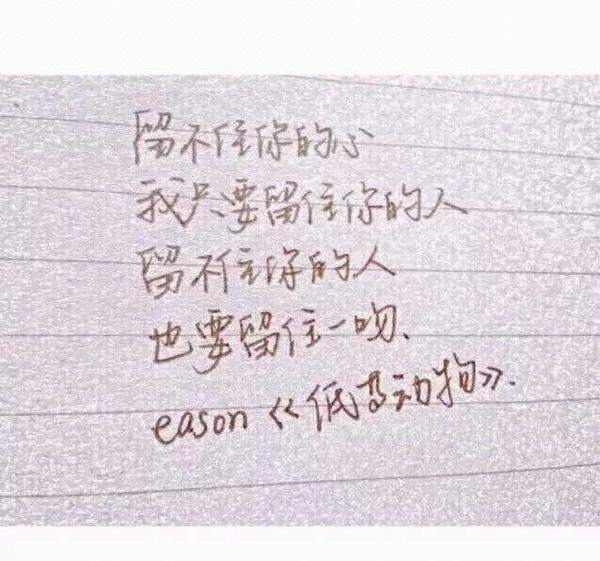 留不住你的心
我只要留住你的人
留不住你的人
也要留住一吻、
eason《低等动物》.